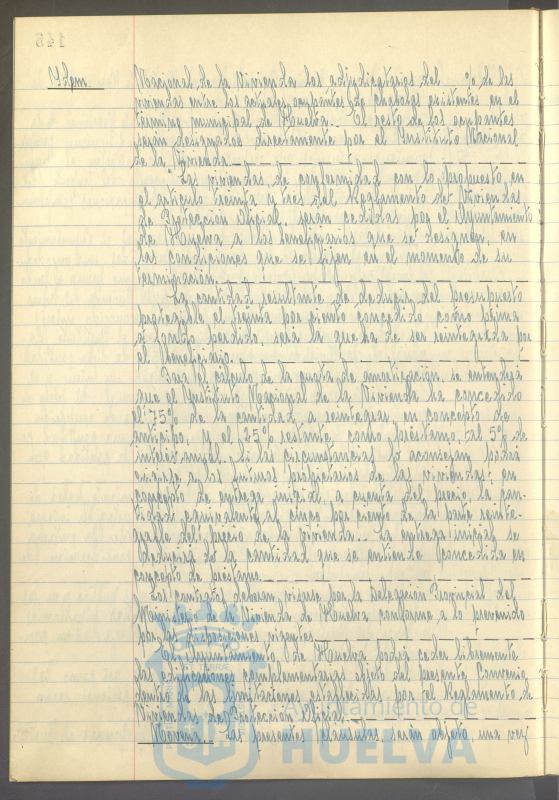 145
Idem.
Nacional de la Vivienda los adjudicatarios del % de las
viviendas entre los actuales ocupantes de chabolas existentes en el
término municipal de Huelva. El resto de los ocupantes
serán designados directamente por el Instituto Nacional
de la Vivienda.
Las viviendas de conformidad con lo propuesto en
el artículo treinta y tres del Reglamento de Viviendas
de Protección Oficial, serán cedidas por el Ayuntamiento
de Huelva a los beneficiarios que se designen, en
las condiciones que se fijen en el momento de su
terminación.
La cantidad resultante de deducir del presupuesto
protegible el treinta por ciento concedido como prima
a fondo perdido, será la que ha de ser reintegrada por
el beneficiario.
Para el cálculo de la cuota de amortización, se entenderá
que el Instituto Nacional de la Vivienda ha concedido
el 75% de la cantidad a reintegrar en concepto de
anticipo, y el 25% restante, como préstamo, al 5% de
interés anual. Si las circunstancias lo aconsejan podrá
exigirse a los futuros propietarios de las viviendas, en
concepto de entrega inicial, a cuenta del precio, la can-
tidad equivalente al cinco por ciento de la parte reinte-
grable del precio de la vivienda. La entrega inicial se
deducirá de la cantidad que se entiende concedida en
concepto de préstamo.
Los contratos deberán visarse por la Delegación Provincial del
Ministerio de la Vivienda de Huelva conforme a lo prevenido
por las disposiciones vigentes.
El Ayuntamiento de Huelva podrá ceder libremente
las edificaciones complementarias objeto del presente Convenio
dentro de las limitaciones establecidas por el Reglamento de
Viviendas de Protección Oficial.
Novena. Las presentes cláusulas, serán objeto, una vez
Ayuntamiento de
HUELVA